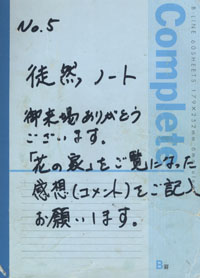 No.5
徒然ノート
御来場ありがとう
ございます。
「花の家」をご覧になった
感想(コメント)をご記入
お願いします。
Complete
B LINE 60SHEETS 179×252mm
B